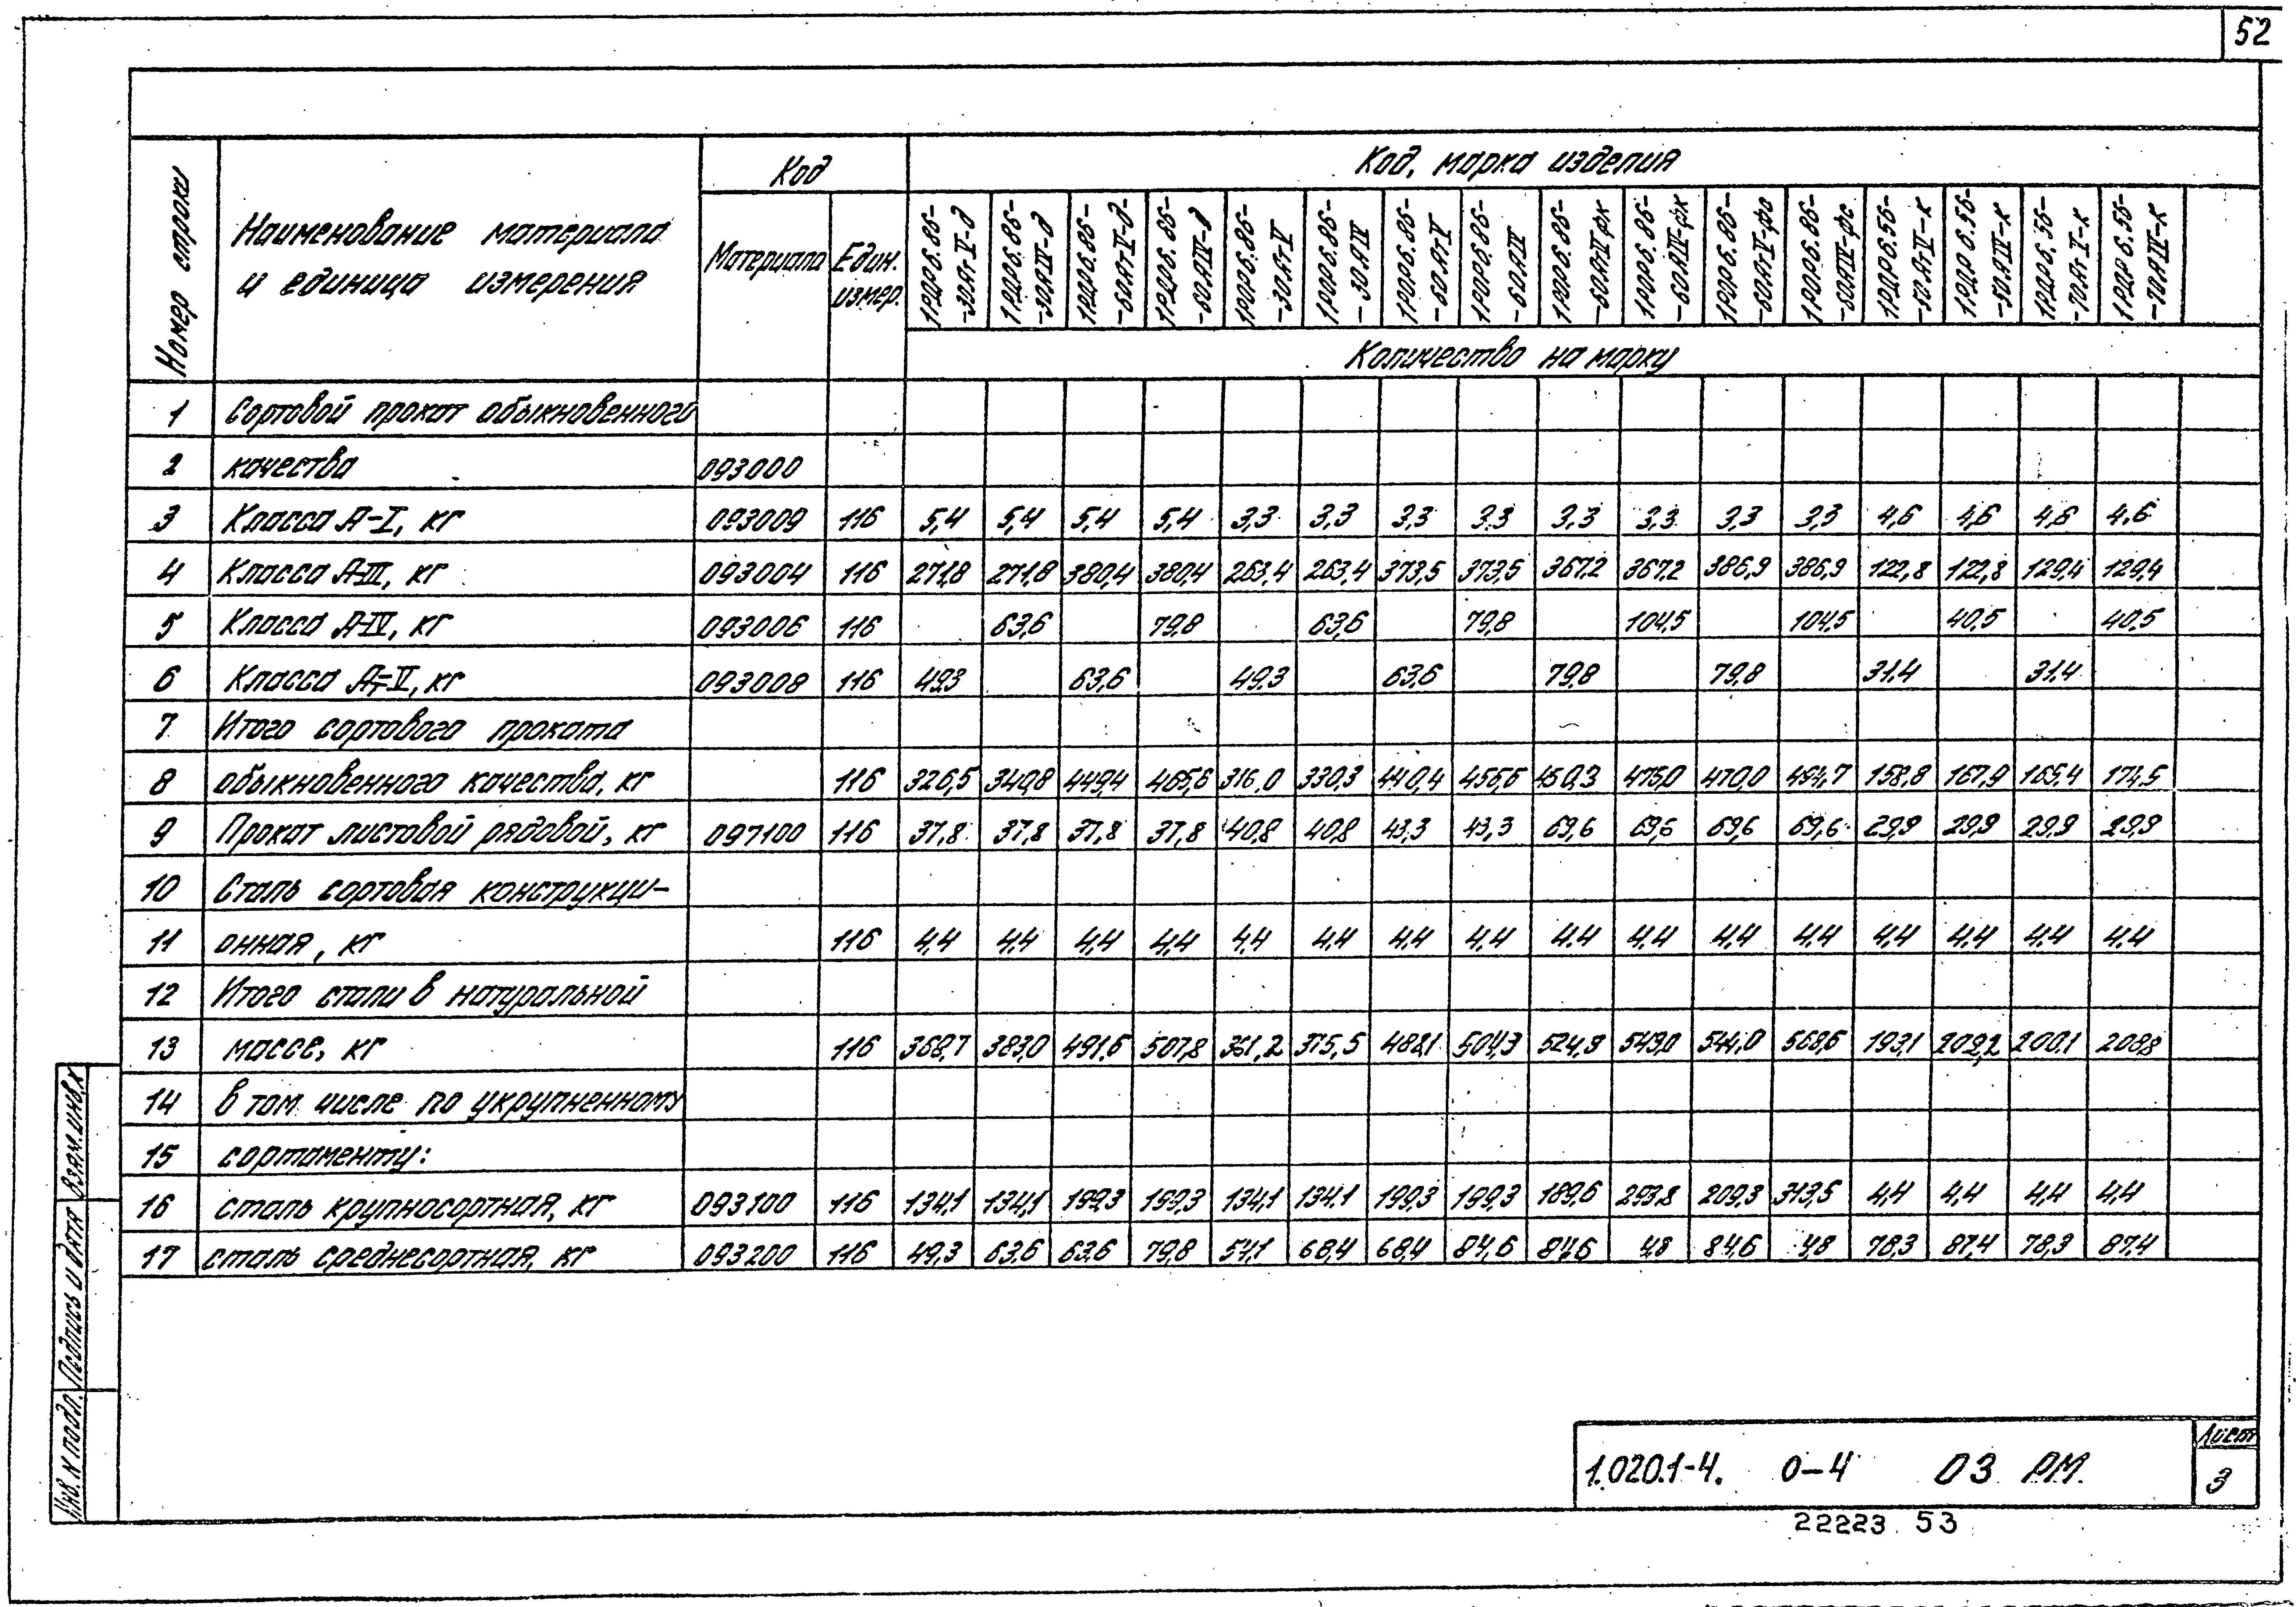 52
Номер строки
Наименование материала и единица измерения
Код
Материала
Един. измер.
Код, марка изделия
1РДР6.86-30АтV-д
1РДР6.86-30АIV-д
1РДР6.86-60АтV-д
1РДР6.86-60АIV-д
1РОР6.86-30АтV
1РОР6.86-30АIV
1РОР6.86-60АтV
1РОР6.86-60АIV
1РОР6.86-60АтV-фк
1РОР6.86-60АIV-фк
1РОР6.86-60АтV-фс
1РОР6.86-60АIV-фс
1РДР6.56-50АтV-к
1РДР6.56-50АIV-к
1РДР6.56-70АтV-к
1РДР6.56-70АIV-к
Количество на марку
1 Сортовой прокат обыкновенного
2 качества 093000
3 Класса А-I, кг 093009 116 5,4 5,4 5,4 5,4 3,3 3,3 3,3 3,3 3,3 3,3 3,3 3,3 4,6 4,6 4,6 4,6
4 Класса А-III, кг 093004 116 271,8 271,8 380,4 380,4 263,4 263,4 373,5 373,5 367,2 367,2 386,9 386,9 122,8 122,8 129,4 129,4
5 Класса А-IV, кг 093006 116 63,6 79,8 63,6 79,8 104,5 104,5 40,5 40,5
6 Класса Ат-V, кг 093008 116 49,3 63,6 49,3 63,6 79,8 79,8 31,4 31,4
7 Итого сортового проката
8 обыкновенного качества, кг 116 326,5 340,8 449,4 465,6 316,0 330,3 440,4 456,6 450,3 475,0 470,0 494,7 158,8 167,9 165,4 174,5
9 Прокат листовой рядовой, кг 097100 116 37,8 37,8 37,8 37,8 40,8 40,8 43,3 43,3 69,6 69,6 69,6 69,6 29,9 29,9 29,9 29,9
10 Сталь сортовая конструкци-
11 онная, кг 116 4,4 4,4 4,4 4,4 4,4 4,4 4,4 4,4 4,4 4,4 4,4 4,4 4,4 4,4 4,4 4,4
12 Итого стали в натуральной
13 массе, кг 116 368,7 383,0 491,6 507,8 361,2 375,5 488,1 504,3 524,3 549,0 544,0 568,6 193,1 202,2 200,1 208,8
14 в том числе по укрупненному
15 сортаменту:
16 сталь крупносортная, кг 093100 116 134,1 134,1 199,3 199,3 134,1 134,1 199,3 199,3 189,6 293,8 209,3 313,5 4,4 4,4 4,4 4,4
17 сталь среднесортная, кг 093200 116 49,3 63,6 63,6 79,8 54,1 68,4 68,4 84,6 84,6 4,8 84,6 4,8 78,3 87,4 78,3 87,4
Взам.инв.к
Подпись и дата
Инв. N подл.
1.020.1-4. 0-4 03 РМ
Лист
3
22223 53